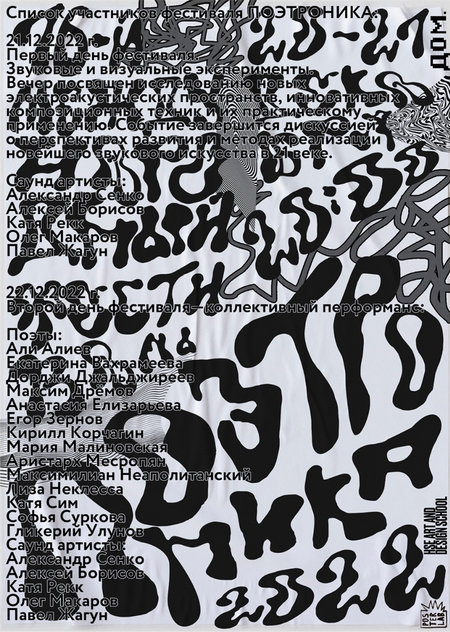 Список участников фестиваля ПОЭТРОНИКА:
21.12.2022 г.
Первый день фестиваля.
Звуковые и визуальные эксперименты.
Вечер посвящен исследованию новых
электроакустических пространств, инновативных
композиционных техник и их практическому
применению. Событие завершится дискуссией
о перспективах развития и методах реализации
новейшего звукового искусства в 21 веке.
Саунд артисты:
Александр Сенко
Алексей Борисов
Катя Рекк
Олег Макаров
Павел Жагун
22.12.2022 г.
Второй день фестиваля – коллективный перформанс:
Поэты:
Али Алиев
Екатерина Вахрамеева
Дорджи Джальджиреев
Максим Дрёмов
Анастасия Елизарьева
Егор Зернов
Кирилл Корчагин
Мария Малиновская
Аристарх Месропян
Максимилиан Неаполитанский
Лиза Неклесса
Катя Сим
Софья Суркова
Гликерий Улунов
Саунд артисты:
Александр Сенко
Алексей Борисов
Катя Рекк
Олег Макаров
Павел Жагун
ДОМ.
20-21
20:00
ПОЭТРО
НИКА
2022
HSE ART AND
DESIGN SCHOOL
POS
TER
LAB